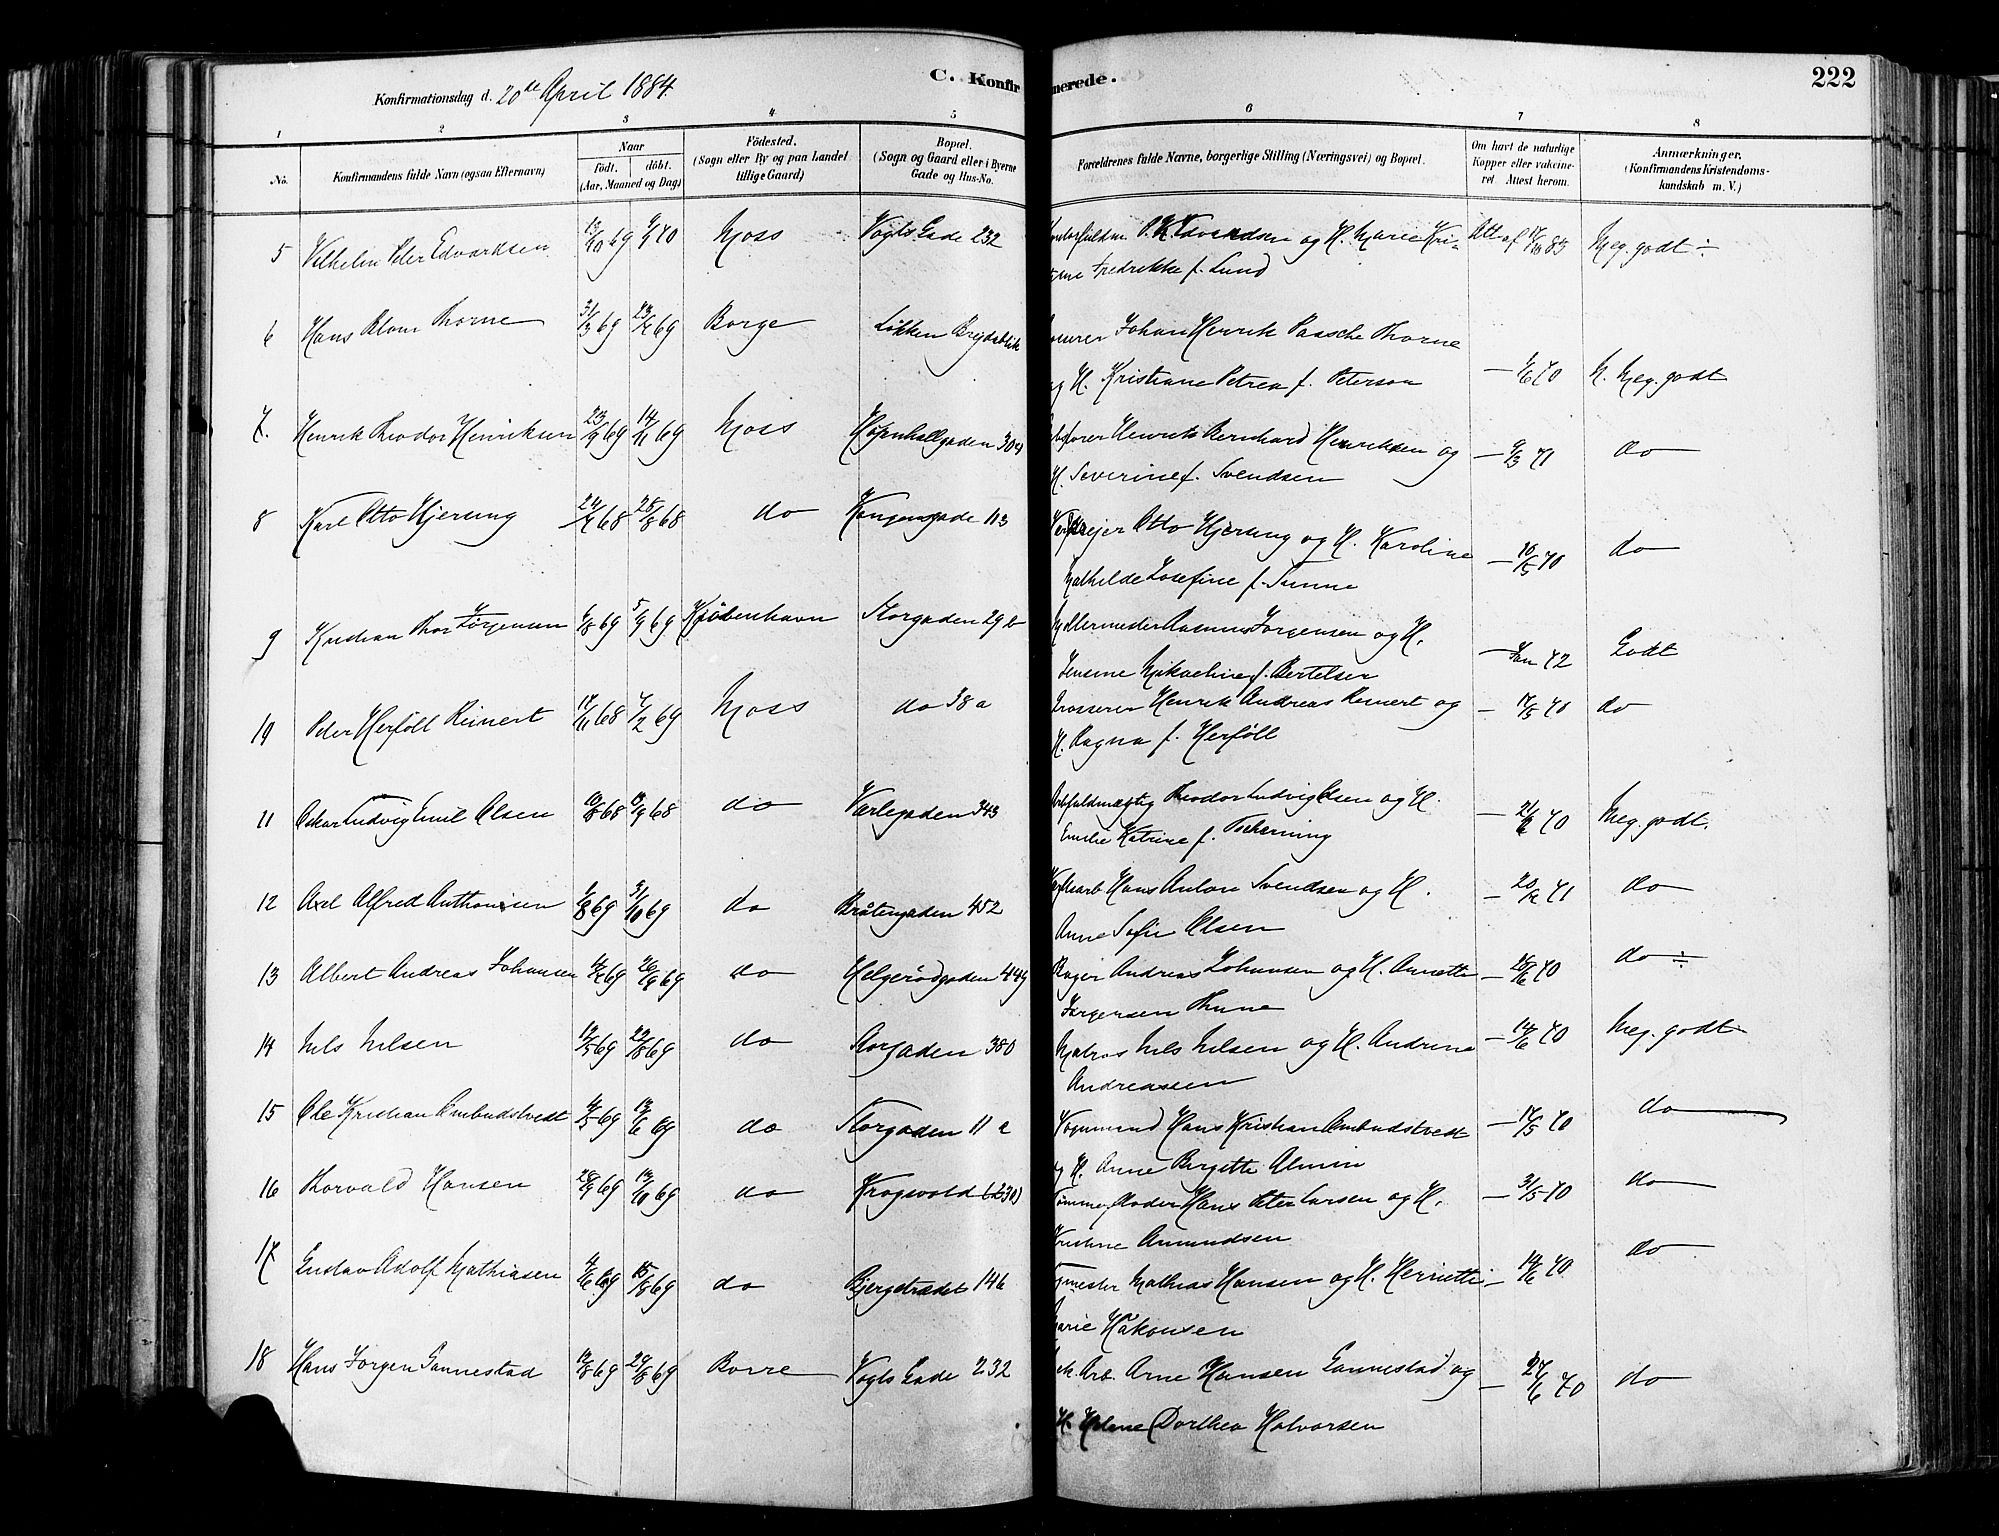 Konfirmationsdag d. 20de April 1884.
C. Konfirmerede.
222
1 2 3 4 5 6 7 8
No.
Konfirmandens fulde Navn (ogsaa Efternavn)
Naar
födt. döbt.
(Aar, Maaned og Dag)
Födested.
(Sogn eller By og paa Landet
tillige Gaard)
Bopæl.
(Sogn og Gaard eller i Byerne
Gade og Hus-No.
Forældrenes fulde Navne, borgerlige Stilling (Næringsvei) og Bopæl.
Om havt de naturlige
Kopper eller vakcine-
ret. Attest herom.
Anmærkninger.
(Konfirmandens Kristendoms-
kundskab m. V.)
5 Vilhelm Peter Edvardsen 13/10 69 Moss Vogts Gade 232 Edvardsen og H. Marie Kri- Att af 83 Meg. godt ÷
Fredrikke f. Lund
6 Hans Blom Thorne 31/3 69 23/4 69 Borge Løkken Johan Henrik Paasche Thorne
og H. Kristiane Petrea f. Peterson — 1/6 70 M. Meg. godt
7. Henrik Theodor Henriksen 23/9 69 14/11 69 Moss 304 Henrik Bernhard Henriksen og — 9/3 71 do
H. Severine f. Svendsen
8 Karl Otto Hjersing 24/4 68 28/8 68 do Kongensgade 113 Otto Hjersing og H. Karoline — 10/5 70 do
Mathilde Josefine f.
9 Kristian Thor Jørgensen 6/8 69 5/9 69 Kjøbenhavn Storgaden 29 b Møllermester Rasmus Jørgensen og H. — Jan 72 Godt
Jensine Mikaeline f. Bertelsen
10 Peter Herföll Reinert 17/11 68 7/2 69 Moss do 38 a Grosserer Henrik Andreas Reinert og — 17/5 70 do
H. Ragna f. Herföll
11 Oskar Ludvig Emil Olsen 10/8 68 13/9 68 do Varlegaden 343 Theodor Ludvig Olsen og H. — 21/6 70 Meg. godt.
Emilie Katrine f. Tscherning
12 Axel Alfred Anthonisen 1/8 69 31/10 69 do Bråtengaden 452 Hans Anton Svendsen og H. — 20/12 71 do
Anne Sofie Olsen
13 Albert Andreas Johansen 69 69 do Helgerödgaden 449 Bager Andreas Johansen og H. Annette — 28/6 70 do ÷
Jørgensen Thune
14 Nils Nilsen 19/5 69 22/8 69 do Storgaden 380 Matros Nils Nilsen og H. Andrine — 14/6 70 Meg. godt
Andreassen
15 Ole Kristian Ombudstvedt 4/5 69 13/6 69 do Storgaden 11 a Vognmand Hans Kristian Ombudstvedt — 17/5 70 do
og H. Anne Birgitte Almin
16 Thorvald Hansen 28/9 69 13/10 69 do Krogsvold (230) Tømmerfløder Hans Peter Larsen og H. — 31/5 70 do
Kristine Amundsen
17 Gustav Adolf Mathiasen 4/6 69 15/8 69 do Bjergstrædet 146 Mathias Hansen og H. Henriette — 14/6 70 do
Marie Håkonsen
18 Hans Jørgen Gannestad 13/8 69 29/8 69 Borre Vogts Gade 232 Arb. Arne Hansen Gannestad og — 27/6 70 do
H. Helene Dorthea Halvorsen